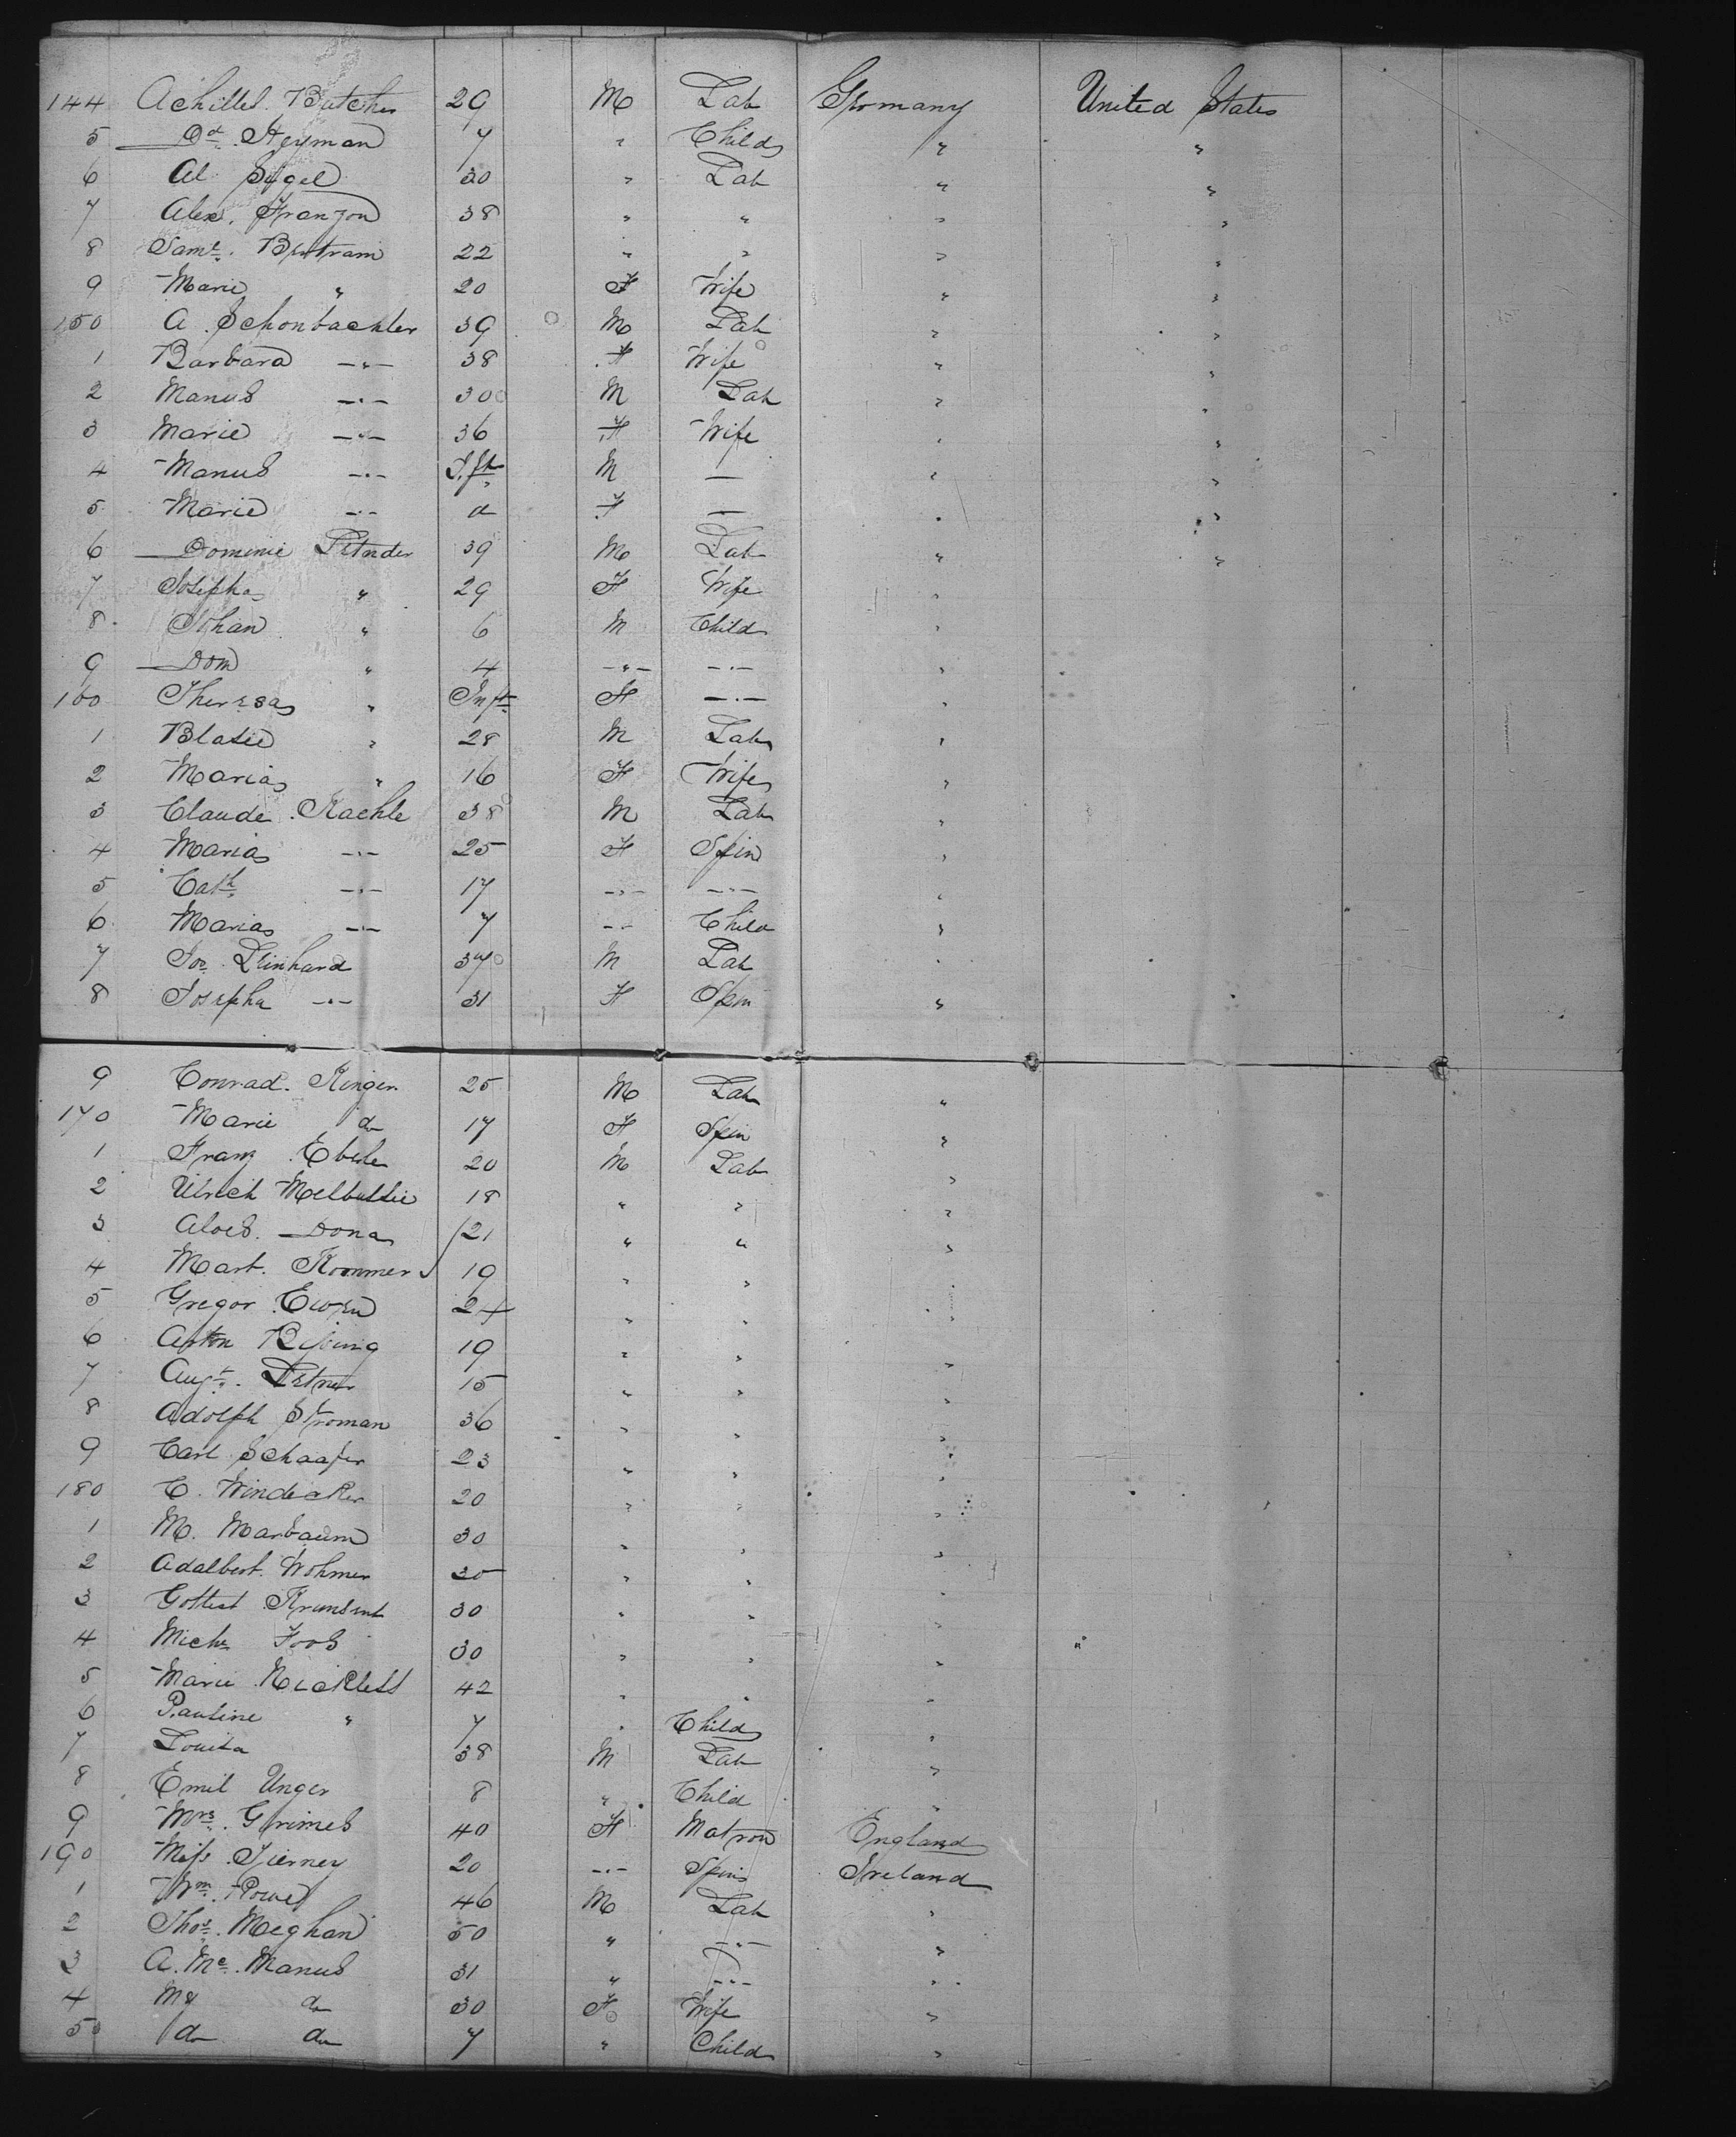 144 Achilles Butcher 29 M Lab Germany United States
5 Dd. Heyman 7 " Child " "
6 Al Sigel 30 " Lab " "
7 Alex. Franzon 38 " " " "
8 Saml. Bertram 22 " " " "
9 Marie " 20 F Wife " "
150 A. Schonbachler 39 M Lab " "
1 Barbara -"- 38 F Wife " "
2 Manus -"- 30 M Lab " "
3 Marie -"- 36 F Wife " "
4 Manus -"- Ift M — " "
5 Marie -"- d F — " "
6 Dominic 39 M Lab " "
7 Josepha " 29 F Wife "
8 Johan " 6 M Child "
9 Dom " 4 -"- -"- "
160 Theresa " Inft F -"- "
1 Blasie " 28 M Lab "
2 Maria " 16 F Wife "
3 Claude Kachle 38 M Lab "
4 Maria -"- 25 F Spin "
5 Cath -"- 17 -"- -"- "
6 Maria -"- 7 -"- Child "
7 Jos. Leinhard 37 M Lab "
8 Josepha -"- 31 F Spin "
9 Conrad Ringer 25 M Lab "
170 Marie do 17 F Spin "
1 Franz Eberle 20 M Lab "
2 Ulrich 18 " " "
3 Alois Dona 21 " " "
4 Mart. Kommer 19 " " "
5 Gregor 24 " " "
6 Anton 19 " " "
7 Augt. 15 " " "
8 Adolph Stroman 36 " " "
9 Carl Schaafer 23 " " "
180 C. Windecker 20 " " "
1 M. Marbaum 30 " " "
2 Adalbert Wohmer 35 " " "
3 30 " " "
4 Mich Foos 30 " " "
5 Marie Nickless 42 " " "
6 Pauline " 7 " Child "
7 Louisa 38 M Lab "
8 Emil Unger 8 " Child "
9 Mrs. Grimes 40 F Matron England
190 Miss Tierney 20 -"- Spin Ireland
1 Wm. Power 46 M Lab "
2 Thos. Meghan 50 " -"- "
3 A. Mc. Manus 31 " -"- "
4 My do 30 F Wife "
5 do do 7 " Child "